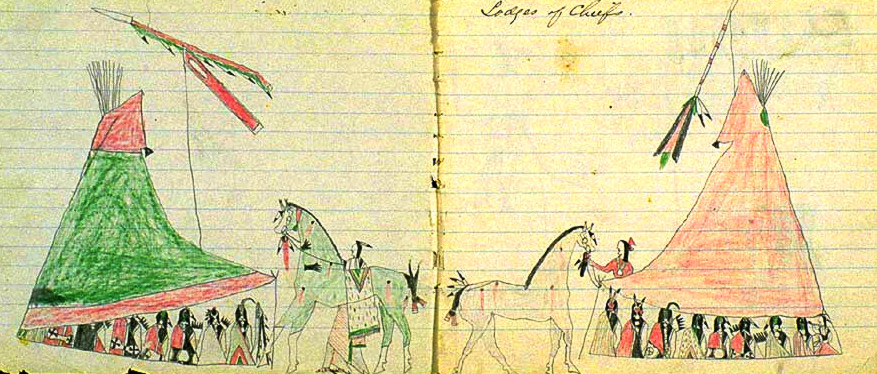 Lodges of Chiefs.